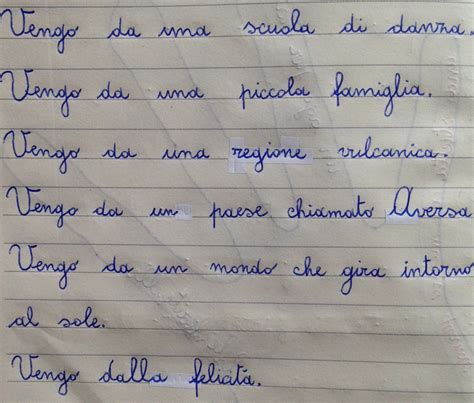 Vengo da una scuola di danza.
Vengo da una piccola famiglia.
Vengo da una regione vulcanica.
Vengo da un paese chiamato Aversa
Vengo da un mondo che gira intorno
al sole.
Vengo dalla felicità.